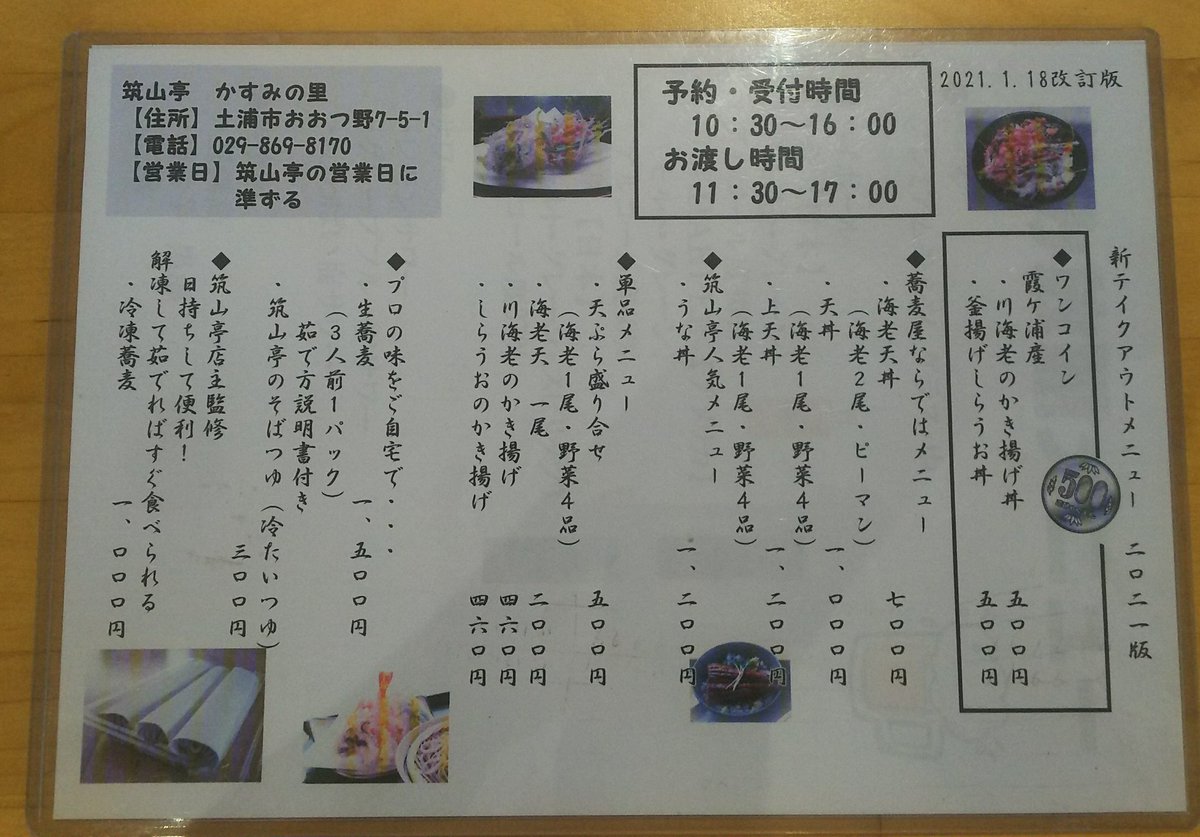 筑山亭 かすみの里
【住所】土浦市おおつ野7-5-1
【電話】029-869-8170
【営業日】筑山亭の営業日に
準ずる
予約・受付時間
10：30～16：00
お渡し時間
11：30～17：00
2021.1.18改訂版
新テイクアウトメニュー 二〇二一版
◆ワンコイン
500
霞ケ浦産
・川海老のかき揚げ丼 五〇〇円
・釜揚げしらうお丼 五〇〇円
◆蕎麦屋ならではメニュー
・海老天丼 七〇〇円
（海老２尾・ピーマン）
・天丼 一、〇〇〇円
（海老１尾・野菜４品）
・上天丼 一、二〇〇円
（海老１尾・野菜４品）
◆筑山亭人気メニュー
・うな丼 一、二〇〇円
◆単品メニュー
・天ぷら盛り合せ 五〇〇円
（海老１尾・野菜４品）
・海老天 一尾 二〇〇円
・川海老のかき揚げ 四六〇円
・しらうおのかき揚げ 四六〇円
◆プロの味をご自宅で・・・
・生蕎麦 一、五〇〇円
（３人前１パック）
茹で方説明書付き
・筑山亭のそばつゆ（冷たいつゆ）
三〇〇円
◆筑山亭店主監修
日持ちして便利！
解凍して茹でればすぐ食べられる
・冷凍蕎麦 一、〇〇〇円